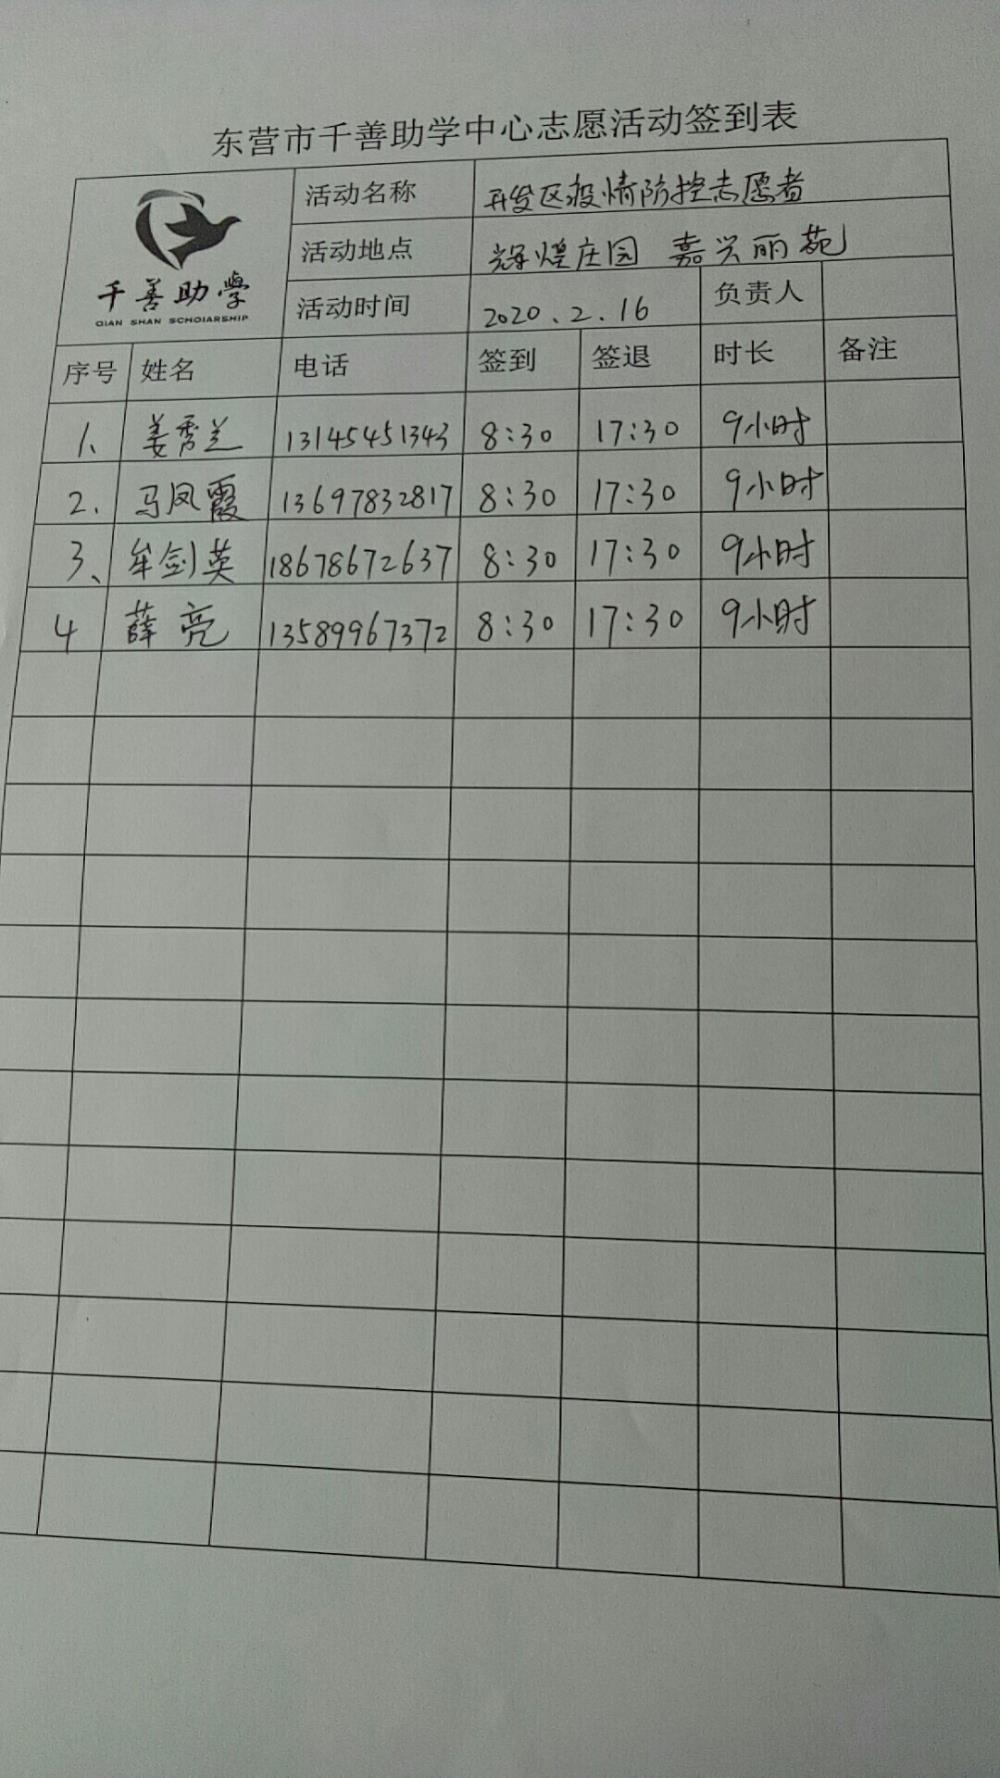 东营市千善助学中心志愿活动签到表
千善助學
QIAN SHAN SCHOIARSHIP
活动名称 开发区疫情防控志愿者
活动地点 辉煌庄园 嘉兴丽苑
活动时间 2020.2.16 负责人
序号 姓名 电话 签到 签退 时长 备注
1、 姜秀兰 13145451343 8:30 17:30 9小时
2. 马凤霞 13697832817 8:30 17:30 9小时
3、 牟剑英 18678672637 8:30 17:30 9小时
4 薛亮 13589967372 8:30 17:30 9小时